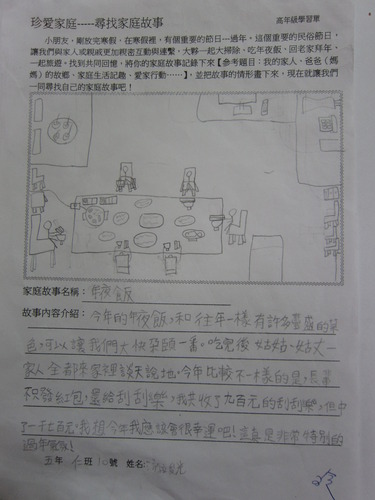 珍愛家庭-----尋找家庭故事
高年級學習單
小朋友，剛放完寒假，在寒假裡，有個重要的節日---過年，這個重要的民俗節日，
讓我們與家人或親戚更加親密互動與連繫，大夥一起大掃除、吃年夜飯、回老家拜年、
一起旅遊，找到共同回憶，將你的家庭故事記錄下來【參考題目：我的家人、爸爸（媽
媽）的故鄉、家庭生活記趣、愛家行動……】，並把故事的情形畫下來，現在就讓我們
一同尋找自己的家庭故事吧！
家庭故事名稱：年夜飯
故事內容介紹：今年的年夜飯，和往年一樣有許多豐盛的菜
色，可以讓我們大快朵頤一番。吃完後，姑姑、姑丈一
家人全都來家裡談天說地，今年比較不一樣的是，長輩
不發紅包，是給刮刮樂，我共收了九百元的刮刮樂，但中
了一千七百元，我想今年我應該會很幸運吧！這真是非常特別的
過年
五年 仁班 10號 姓名：